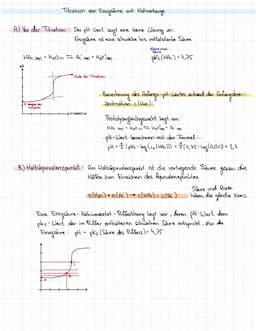 Titration von Essigsäure mit Natronlauge
A) Vor der Titration: Der pH-Wert liegt eine reine Lösung an.
Essigsäure ist eine schwache bis mittelstarke Säure.
HAc (aq) + H₂O (l) ⇌ Ac⁻(aq) + H₃O⁺(aq)
pKs(HAc) = 4,75
Ende der Titration
Berechnung des Anfangs-pH-Wertes anhand der Anfangskon-
zentration c(HAc):
Protolysegleichgewicht liegt vor:
HAc (aq) + H₂O (l) ⇌ H₃O⁺(aq) + Ac⁻(aq)
- pH-Wert berechnen mit der Formel:
B) Halbäquivalenzpunkt: Am Halbäquivalenzpunkt ist die vorliegende Säure genau die
Hälfte zum Erreichen des Äquivalenzpunktes.
Säure und Base
haben die gleiche Konz.
Eine Essigsäure-Natriumacetat-Pufferlösung liegt vor, deren pH-Wert dem
pKs-Wert der im Puffer enthaltenen schwachen Säure entspricht, also die
Essigsäure: pH = pKs (Säure des Puffers) = 4,75